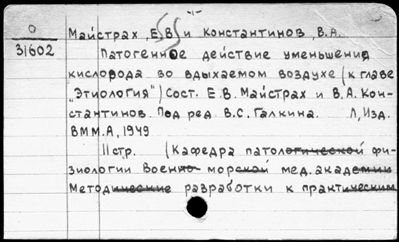 О
31602
Майстрах, Е.В. и Константинов, В.А.
Патогенное действие уменьшения
кислорода во вдыхаемом воздухе (к главе
"Этиология") Сост. Е.В. Майстрах и В.А. Кон-
стантинов. Под ред. В.С. Галкина. Л, Изд.
ВММА, 1949
11 стр. (Кафедра патологической фи-
зиологии Военно-морской мед. академии
Методические разработки к практическим